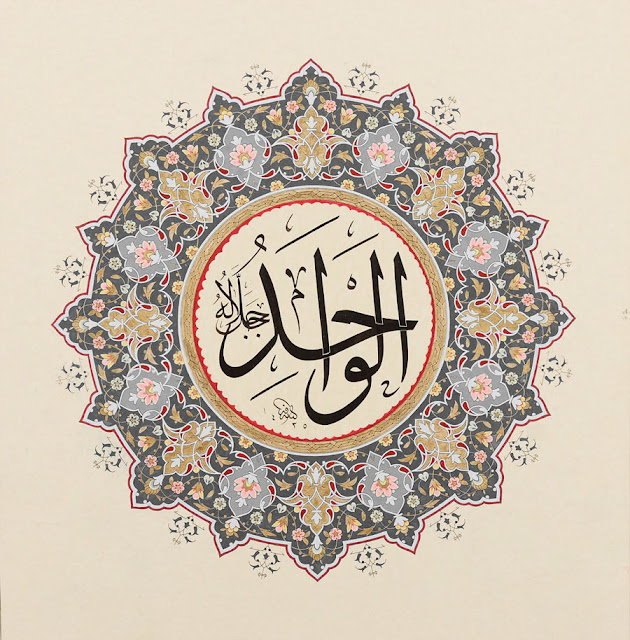 الواحد
جل جلاله